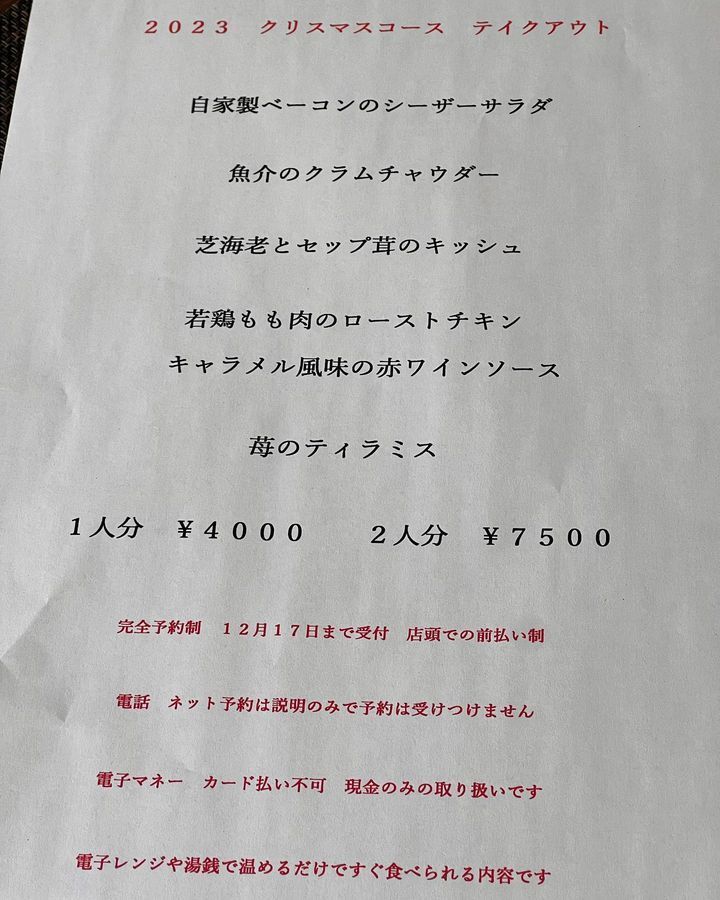 ２０２３　クリスマスコース　テイクアウト
自家製ベーコンのシーザーサラダ
魚介のクラムチャウダー
芝海老とセップ茸のキッシュ
若鶏もも肉のローストチキン
キャラメル風味の赤ワインソース
苺のティラミス
１人分　￥４０００　　２人分　￥７５００
完全予約制　１２月１７日まで受付　店頭での前払い制
電話　ネット予約は説明のみで予約は受けつけません
電子マネー　カード払い不可　現金のみの取り扱いです
電子レンジや湯銭で温めるだけですぐ食べられる内容です